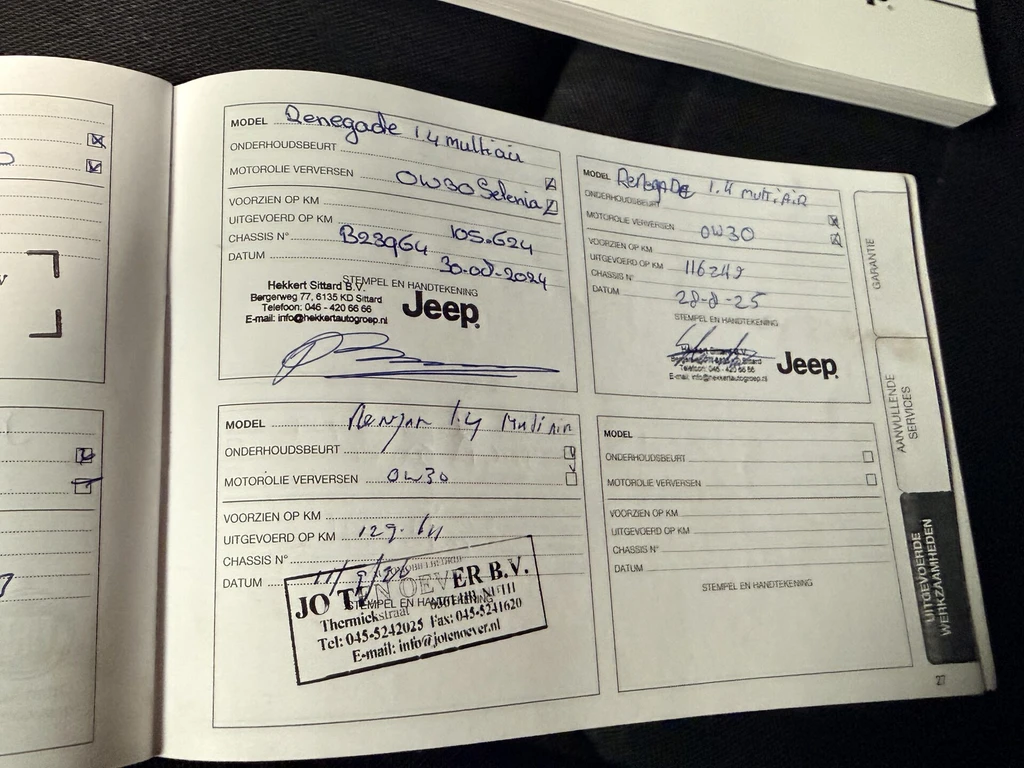 p.
MODEL Renegade 1.4 multiair
ONDERHOUDSBEURT
MOTOROLIE VERVERSEN 0W30 Selenia
VOORZIEN OP KM
UITGEVOERD OP KM 105.624
CHASSIS N° B28964
DATUM 30-08-2024
STEMPEL EN HANDTEKENING
Hekkert Sittard B.V.
Bergerweg 77, 6135 KD Sittard
Telefoon: 046 - 420 66 66
E-mail: info@hekkertautogroep.nl
Jeep
MODEL Renegade 1.4 multiAiR
ONDERHOUDSBEURT
MOTOROLIE VERVERSEN 0W30
VOORZIEN OP KM
UITGEVOERD OP KM 116249
CHASSIS N°
DATUM 28-8-25
STEMPEL EN HANDTEKENING
Sittard
Telefoon: 046 - 420 66 66
E-mail: info@hekkertautogroep.nl
Jeep
MODEL 1.4 Multi Air
ONDERHOUDSBEURT
MOTOROLIE VERVERSEN 0W30
VOORZIEN OP KM
UITGEVOERD OP KM
CHASSIS N°
DATUM
STEMPEL EN HANDTEKENING
JO TEN OEVER B.V.
Thermiekstraat 6361 HB NUTH
Tel: 045-5242025 Fax: 045-5241620
E-mail: info@jotenoever.nl
MODEL
ONDERHOUDSBEURT
MOTOROLIE VERVERSEN
VOORZIEN OP KM
UITGEVOERD OP KM
CHASSIS N°
DATUM
STEMPEL EN HANDTEKENING
GARANTIE
AANVULLENDE
SERVICES
UITGEVOERDE
WERKZAAMHEDEN
27